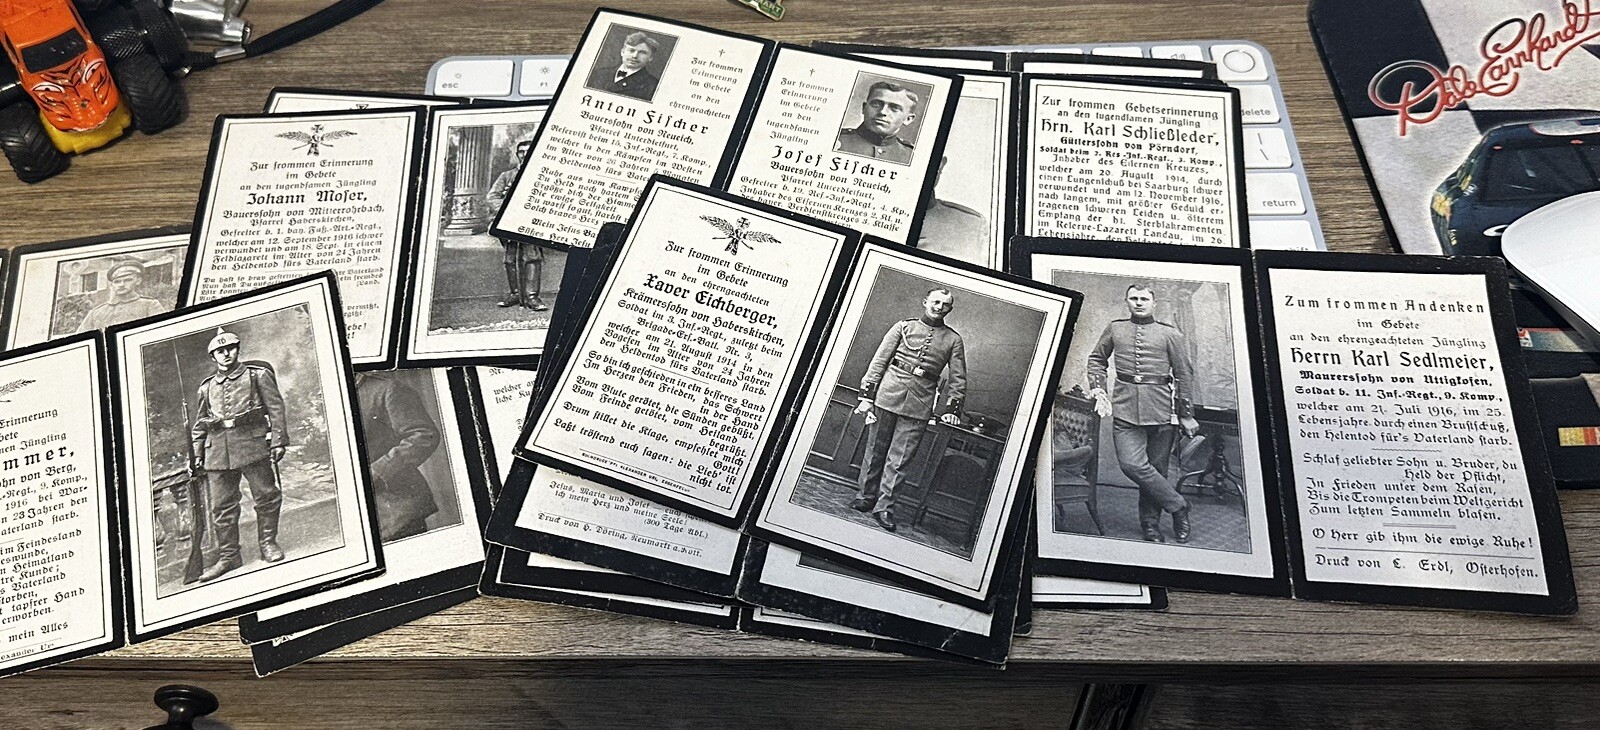 esc
F1
delete
\
return
Dale Earnhardt
Zur frommen Erinnerung
im Gebete
an den tugendsamen Jüngling
Johann Moser,
Bauerssohn von Mitterrohrbach,
Pfarrei Haberskirchen,
Gefreiter b. 1. bay. Fuß-Art.-Regt.,
welcher am 12. September 1916 schwer
verwundet und am 18. Sept. in einem
Feldlazarett im Alter von 21 Jahren
den Heldentod fürs Vaterland starb.
Zur frommen
Erinnerung
im Gebete
an den
ehrengeachteten
Anton Fischer
Bauerssohn von Neueich,
Pfarrei Unterdietfurt,
Reservist beim 15. Inf.-Regt., 7. Komp.,
welcher in den Kämpfen im Westen
im Alter von 26 Jahren
den Heldentod fürs Vaterland
Zur frommen
Erinnerung
im Gebete
an den
tugendsamen
Jüngling
Josef Fischer
Bauerssohn von Neueich,
Pfarrei Unterdietfurt,
Gefreiter b. 19. Ref.-Inf.-Regt., 4. Kp.,
Inhaber des Eisernen Kreuzes 2. Kl. u.
Verdienstkreuzes 3. Klasse
Zur frommen Gebetserinnerung
an den tugendsamen Jüngling
Hrn. Karl Schließleder,
Gütlerssohn von Pörndorf,
Soldat beim 2. Res.-Inf.-Regt., 3. Komp.,
Inhaber des Eisernen Kreuzes,
welcher am 20. August 1914, durch
einen Lungenschuß bei Saarburg schwer
verwundet und am 12. November 1916,
nach langem, mit größter Geduld er-
tragenen schweren Leiden u. öfterem
Empfang der hl. Sterbsakramenten
im Reserve-Lazarett Landau, im 26.
Zur frommen Erinnerung
im Gebete
an den ehrengeachteten
Xaver Eichberger,
Krämerssohn von Haberskirchen,
Soldat im 3. Inf.-Regt., zuletzt beim
Brigade-Ers.-Batl. Nr. 3,
welcher am 21. August 1914 in den
Vogesen im Alter von 24 Jahren
den Heldentod fürs Vaterland starb.
So bin ich geschieden in ein besseres Land
Im Herzen den Frieden, das Schwert
in der Hand
Vom Blute gerötet, die Sünden gebüßt,
Vom Feinde getötet, vom Heiland
begrüßt.
Drum stillet die Klage, empfehlet mich
Gott!
Laßt tröstend euch sagen: die Lieb' ist
nicht tot.
Jesus, Maria und Josef
ich mein Herz und meine Seele!
(300 Tage Abl.)
Druck von H. Döring, Neumarkt a. Rott.
Zum frommen Andenken
im Gebete
an den ehrengeachteten Jüngling
Herrn Karl Sedlmeier,
Maurerssohn von Uttigkofen,
Soldat b. 11. Inf.-Regt., 9. Komp.,
welcher am 21. Juli 1916, im 25.
Lebensjahre, durch einen Brustschuß,
den Helentod für's Vaterland starb.
Schlaf geliebter Sohn u. Bruder, du
Held der Pflicht,
In Frieden unter dem Rasen,
Bis die Trompeten beim Weltgericht
Zum letzten Sammeln blasen.
O Herr gib ihm die ewige Ruhe!
Druck von C. Erdl, Osterhofen.
Erinnerung
Jüngling
mmer,
von Berg,
-Regt., 9. Komp.,
1916 bei War-
n 23 Jahren den
aterland starb.
im Feindesland
Heimatland
tre Kunde;
s Vaterland
storben,
t tapfrer Hand
erworben.
mein Alles